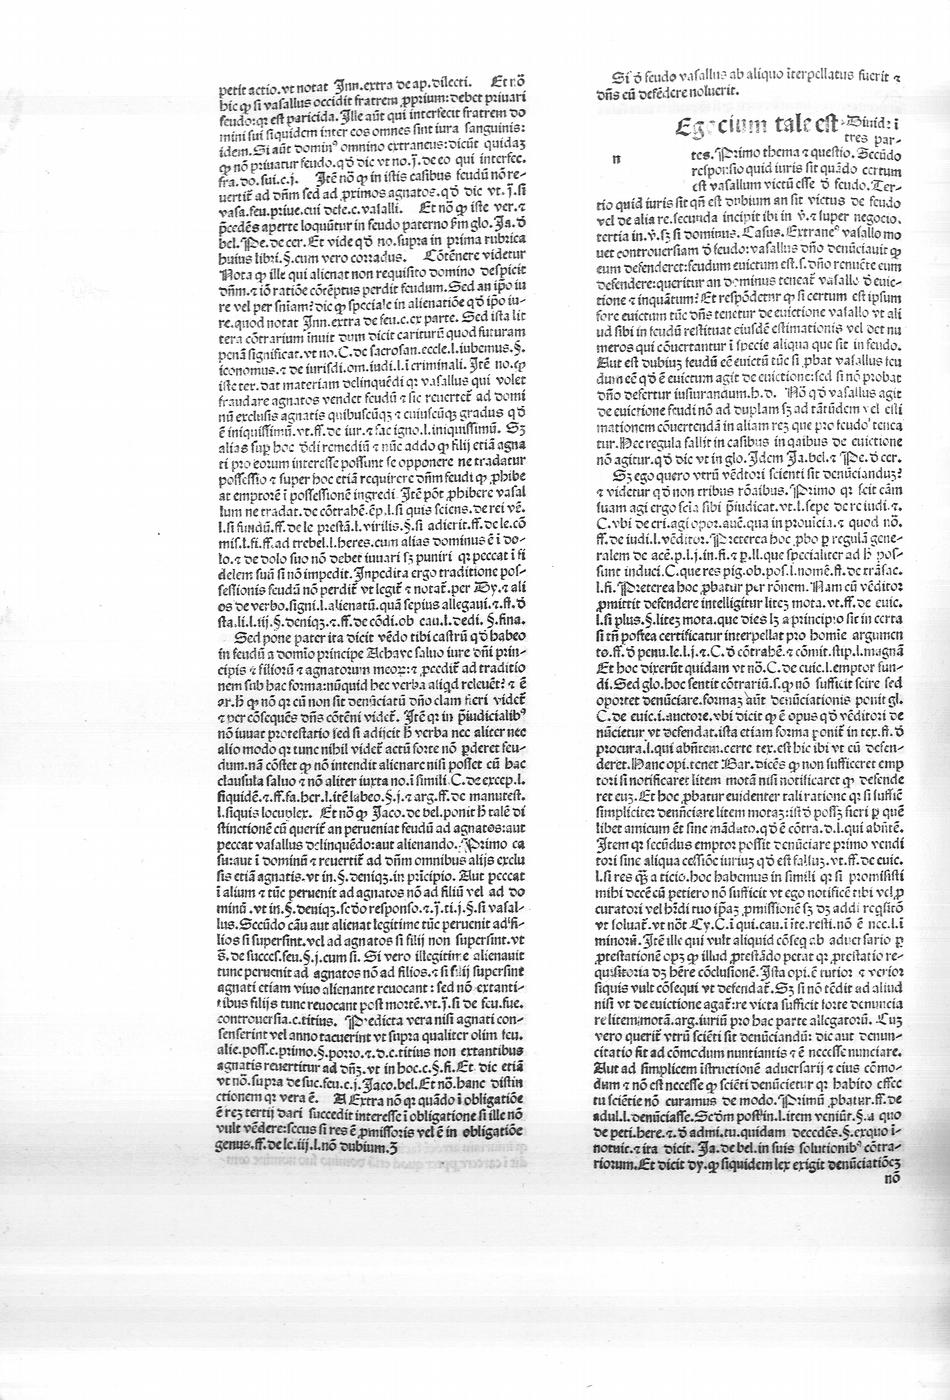 petit actio.vt notat Inn.extra de ap.dilecti. Et nõ
hic ꝙ si vasallus occidit fratrem ꝓprium:debet priuari
feudo:qꝛ est paricida. Ille aũt qui interfecit fratrem do
mini sui siquidem inter eos omnes sint iura sanguinis:
idem. Si aũt dominꝰ omnino extraneus:dicũt quidaꝫ
ꝙ nõ priuatur feudo.qď dic vt no.j̃.de eo qui interfec.
fra.do.sui.c.j. Itẽ nõ ꝙ in istis casibus feudũ nõ re-
uertit̃ ad dñm sed ad ꝓximos agnatos.qď dic vt.j̃.si
vasa.feu.priue.cui defe.c.vasalli. Et nõ ꝙ iste ver.⁊
p̃cedẽs aperte loquũtur in feudo paterno ẜm glo.Ja.ď
bel.Pe.de cer. Et vide qď no.supra in prima rubrica
huius libri.§.cum vero corradus. Cõtẽnere videtur
Nota ꝙ ille qui alienat non requisito domino despicit
dñm.⁊ iõ ratiõe cõtẽptus perdit feudum. Sed an ip̃o iu
re vel per sniam? dic ꝙ speciale in alienatiõe qď ip̃o iu-
re.quod notat Inn.extra de feu.c.ex parte. Sed ista lit
tera cõtrarium inuit dum dicit cariturũ quod futuram
penã significat.vt no.C.de sacrosan.eccle.l.iubemus.§.
iconomus.⁊ de iurisdi.om.iudi.l.ĩ criminali. Itẽ no.ꝙ
iste ter.dat materiam delinquẽdi qꝛ vasallus qui volet
fraudare agnatos vendet feudũ ⁊ sic reuertet̃ ad domi
nũ exclusis agnatis quibuscũqꝫ ⁊ cuiuscũqꝫ gradus qď
ẽ iniquissimũ.vt.ff.de iur.⁊ fac.igno.l.iniquissimũ. Sꝫ
alias sup hoc ďdi remediũ ⁊ nũc addo ꝙ filij etiã agna
ti pro eorum interesse possunt se opponere ne tradatur
possessio ⁊ super hoc etiã requirere dñm feudi ꝙ ꝓhibe
at emptorẽ ĩ possessionẽ ingredi. Itẽ põt ꝓhibere vasal
lum ne tradat.de cõtrahẽ.ẽp.l.si quis sciens.de rei vẽ.
l.si fundũ.ff.de le prestã.l.virilis.§.si adierit.ff.de le.cõ
mis.l.fi.ff.ad trebel.l.heres.cum alias dominus ẽ ĩ do-
lo.⁊ de dolo suo nõ debet iuuari sꝫ puniri qꝛ peccat ĩ fi
delem suũ si nõ impedit. Inpedita ergo traditione pos-
sessionis feudũ nõ perdit̃ vt legit̃ ⁊ notat̃.per Dy.⁊ ali
os de verbo.signi.l.alienatũ.quã sepius allegaui.⁊.ff.ď
sta.li.l.iij.§.deniqꝫ.⁊.ff.de cõdi.ob cau.l.dedi.§.fina.
Sed pone pater ita dicit vẽdo tibi castrũ qď habeo
in feudũ a domĩo principe Achaye saluo iure dñi prin-
cipis ⁊ filiorũ ⁊ agnatorum meorꝝ:⁊ ꝓcedit̃ ad traditio
nem sub hac forma:nũquid hec verba aliqd releuẽt? ⁊ ẽ
or.ħ ꝙ nõ qꝛ cũ non sit denũciatũ dño clam fieri videt̃
⁊ per cõsequẽs dñs cõtẽni videt̃. Itẽ qꝛ in p̃iudicialibꝰ
nõ iuuat protestatio sed si adijcit ħ verba nec aliter nec
alio modo qꝛ tunc nihil videt̃ actũ forte nõ ꝑderet feu-
dum.nã cõstet ꝙ nõ intendit alienare nisi posset cũ hac
clausula saluo ⁊ nõ aliter iuxta no.ĩ simili.C.de excep.l.
siquidẽ.⁊.ff.fa.her.l.itẽ labeo.§.j.⁊ arg.ff.de manutest.
l.siquis locuplex. Et nõ ꝙ Jaco.de bel.ponit ħ talẽ di
stinctionẽ cũ querit̃ an perueniat feudũ ad agnatos:aut
peccat vasallus delinquẽdo:aut alienando. Primo ca
su:aut ĩ dominũ ⁊ reuertit̃ ad dñm omnibus alijs exclu
sis etiã agnatis.vt in.§.deniqꝫ.in pr̃icipio. Aut peccat
ĩ alium ⁊ tũc peruenit ad agnatos nõ ad filiũ vel ad do
minũ.vt in.§.deniqꝫ.scďo responso.⁊.j̃.ti.j.§.si vasal-
lus. Secũdo cãu aut alienat legitime tũc peruenit ad fi-
lios si supersint.vel ad agnatos si filij non supersint.vt
s̃.de succes.feu.§.j.cum si. Si vero illegitime alienauit
tunc peruenit ad agnatos nõ ad filios.⁊ si filij supersint
agnati etiam viuo alienante reuocant:sed nõ extanti-
bus filijs tunc reuocant post mortẽ.vt.j̃.si de feu.fue.
controuersia.c.titius. Predicta vera nisi agnati con-
senserint vel anno tacuerint vt supra qualiter olim feu.
alie.poss.c.primo.§.porro.⁊.d.c.titius non extantibus
agnatis reuertitur ad dñꝫ.vt in hoc.c.§.fi. Et dic etiã
vt nõ.supra de suc.feu.c.j. Jaco.bel. Et nõ.hanc distin
ctionem qꝛ vera ẽ. A Extra nõ qꝛ quãdo ĩ obligatiõe
ẽ reꝫ tertij dari succedit interesse ĩ obligatione si ille nõ
vult vẽdere:secus si res ẽ ꝓmissoris vel ẽ in obligatiõe
genus.ff.de le.iij.l.nõ dubium.3
Si ď feudo vasallus ab aliquo ĩterpellatus fuerit ⁊
dñs cũ defẽdere noluerit.
Egocium tale est. Diuid:ĩ
n
tres par-
tes. Primo thema ⁊ questio. Secũdo
responsio quid iuris sit quãdo certum
est vasallum victũ esse ď feudo. Ter-
tio quid iuris sit qñ est dubium an sit victus de feudo
vel de alia re.secunda incipit ibi in ꝟ.⁊ super negocio.
tertia in.ꝟ.sꝫ si dominus. Casus. Extraneꝰ vasallo mo
uet controuersiam ď feudo:vasallus dño denũciauit ꝙ
eum defenderet:feudum euictum est.s.dño renuẽte eum
defendere:queritur an dominus teneat̃ vasallo ď euic-
tione ⁊ inquãtum? Et respõdetur ꝙ si certum est ipsum
fore euictum tũc dñs tenetur de euictione vasallo vt ali
ud sibi in feudũ restituat eiusdẽ estimationis vel det nu
meros qui cõuertantur ĩ specie aliqua que sit in feudo.
Aut est dubiuꝫ feudũ eẽ euictũ tũc si ꝓbat vasallus feu
dum eẽ qď ẽ euictum agit de euictione:sed si nõ probat
dño defertur iusiurandum.h.d. Nõ qď vasallus agit
de euictione feudi nõ ad duplam sꝫ ad tãtũdem vel esti
mationem cõuertendã in aliam reꝫ que pro feudo tenea
tur. Hec regula fallit in casibus in quibus de euictione
nõ agitur.qď dic vt in glo. Idem Ja.bel.⁊ Pe.ď cer.
Sꝫ ego quero vtrũ vẽditori scienti sit denũcianduꝫ?
⁊ videtur qď non tribus rõaibus. Primo qꝛ scit cãm
suam agi ergo sciã sibi p̃iudicat.vt.l.sepe de re iudi.⁊.
C.vbi de cri.agi opor.auẽ.qua in prouicia.⁊ quod nõ.
ff.de iudi.l.vẽditor. Preterea hoc ꝓbo ꝑ regulã gene-
ralem de acẽ.p.l.j.in.fi.⁊ p.ll.que specialiter ad ħ pos-
sunt induci.C.que res pig.ob.pos.l.nomẽ.ff.de trãsac.
l.fi. Preterea hoc ꝓbatur per rõnem. Nam cũ vẽditor
ꝓmittit defendere intelligitur liteꝫ mota.vt.ff.de euic.
l.si plus.§.liteꝫ mota.que dies lꝫ a principio sit in certa
si tñ postea certificatur interpellat pro homĩe argumen
to.ff.ď penu.le.l.j.⁊.C.ď cõtrahẽ.⁊ cõmit.stip.l.magnã
Et hoc dixerũt quidam vt nõ.C.de euic.l.emptor fun-
di. Sed glo.hoc sentit cõtrariũ.s.ꝙ nõ sufficit scire sed
oportet denũciare.formaꝫ aũt denũciationis ponit gl.
C.de euic.l.auctore.vbi dicit ꝙ ẽ opus qď vẽditori de
nũcietur vt defendat.ista etiam forma ponit̃ in tex.ff.ď
procura.l.qui abñtem.certe tex.est hic ibi vt cũ defen-
deret. Hanc opi.tenet Bar.dicẽs ꝙ non sufficeret emp
tori si notificaret litem motã nisi notificaret ꝙ defende
ret euꝫ. Et hoc ꝓbatur euidenter tali ratione qꝛ si suffic̃
simpliciter denũciare litem motaꝫ:istď possꝫ fieri ꝑ quẽ
libet amicum ẽt sine mãdato.qď ẽ cõtra.d.l.qui abñtẽ.
Item qꝛ secũdus emptor possit denũciare primo vendi
tori sine aliqua cessiõe iuriuꝫ qď est falsuꝫ.vt.ff.de euic.
l.si res q̃ȝ a ticio.hoc habemus in simili qꝛ si promisisti
mihi decẽ cũ petiero nõ sufficit vt ego notificẽ tibi vel ꝓ
curatori vel hr̃di tuo ip̃aꝫ ꝓmissionẽ sꝫ dꝫ addi reqsitõ
vt soluat̃.vt nõt Cy.C.ĩ qui.cau.ĩ ĩte.resti.nõ ẽ nec.l.ĩ
minorũ. Itẽ ille qui vult aliquid cõseq̃ ab aduersario ꝑ
ꝓtestationẽ opꝫ ꝙ illud ꝓtestãdo petat qꝛ ꝓtestatio re-
quisitoria dꝫ hẽre cõclusionẽ. Ista opi.ẽ tutior ⁊ verior
siquis vult cõsequi vt defendat̃. Sꝫ si nõ tẽdit ad aliud
nisi vt de euictione agat̃:re victa sufficit forte denuncia
re litem motã.arg.iuriũ pro hac parte allegatorũ. Cuꝫ
vero querit̃ vtrũ sciẽti sit denũciandũ: dic aut denun-
ciatio fit ad cõmodum nuntiantis ⁊ ẽ necesse nunciare.
Aut ad simplicem ĩstructionẽ aduersarij ⁊ eius cõmo-
dum ⁊ nõ est necesse ꝙ sciẽti denũcietur qꝛ habito effec
tu sciẽtie nõ curamus de modo. Primũ ꝓbatur.ff.de
adul.l.denũciasse. Scďm possin.l.item veniũt.§.a quo
de peti.here.⁊.ď admi.tu.quidam decedẽs.§.ex quo ĩ-
notuit.⁊ ita dicit. Ja.de bel.in suis solutionibꝰ cõtra-
riorum. Et dicit dy.ꝙ siquidem lex exigit denũciatiõeꝫ
nõ